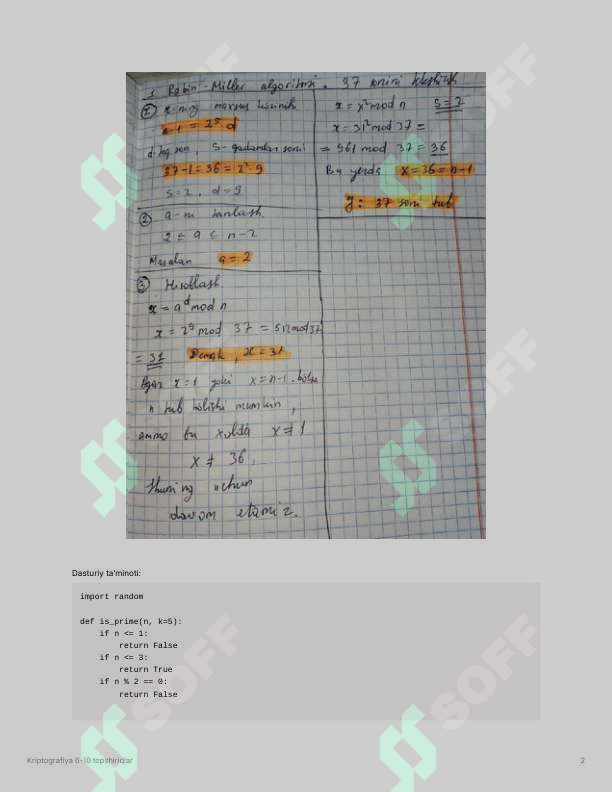 1. Rabin-Miller algoritmi. 37 sonini tekshirish
① n-ning maxsus ko'rinishi
n-1 = 2ˢ·d
d toq son, S- qadamlar soni
37-1=36=2²·9
S=2, d=9
② a-ni tanlash
2 ≤ a ≤ n-2
Masalan a=2
③ Hisoblash
x = aᵈ mod n
x = 2⁹ mod 37 = 512 mod 37
= 31 Demak, x=31
Agar x=1 yoki x=n-1 bo'lsa
n tub bo'lishi mumkin,
ammo bu holda x≠1
x ≠ 36.
Shuning uchun
davom etamiz.
x = x² mod n S=2
x = 31² mod 37 =
= 961 mod 37 = 36
Bu yerda x=36=n-1
J: 37 soni tub
Dasturiy ta'minoti:
import random
def is_prime(n, k=5):
if n <= 1:
return False
if n <= 3:
return True
if n % 2 == 0:
return False
Kriptografiya 6-10 topshiriqlar 2
SOFF
SOFF
SOFF
SOFF
SOFF
SOFF